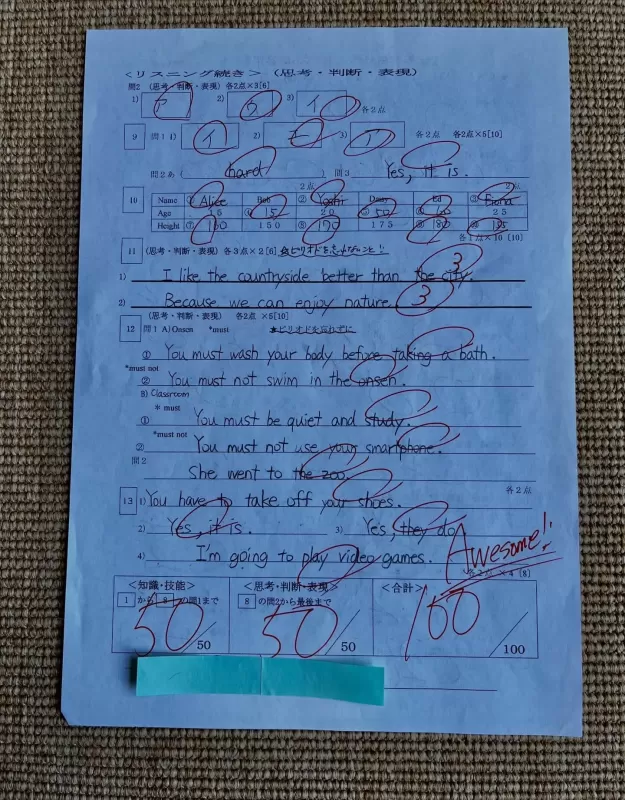 <リスニング続き> (思考・判断・表現)
問2 (思考・判断・表現) 各2点×3[6]
1) ア 2) ウ 3) イ 各2点
9 問1 1) イ 2) 3) 各2点 各2点×5[10]
問2あ( hard ) 問3 Yes, it is.
2点 2点
10 Name ① Alice Bob ② Yoshi Dan Ed ③
Age 15 ④ 15 20 ⑤ 50 ⑥ 25
Height ⑦ 150 ⑧ 170 175 ⑨ 180 ⑩
各1点×10 [10]
11 (思考・判断・表現) 各3点×2[6] ピリオドを忘れないこと!!
1) I like the countryside better than the city. 3
2) Because we can enjoy nature. 3
(思考、判断・表現) 各2点 ×5[10]
12 問1 A) Onsen *must ★ピリオドを忘れずに
① You must wash your body before taking a bath.
*must not
② You must not swim in the onsen.
B) Classroom
* must
① You must be quiet and study.
*must not
② You must not use your smartphone.
問2
She went to the zoo.
各2点
13 1) You have to take off your shoes.
2) Yes, it is. 3) Yes, they do.
4) I'm going to play video games.
Awesome!!
各2点 ×4 [8]
<知識・技能> <思考・判断・表現> <合計>
1 から 8 の問1まで 8 の問2から最後まで
50 /50 50 /50 100 /100